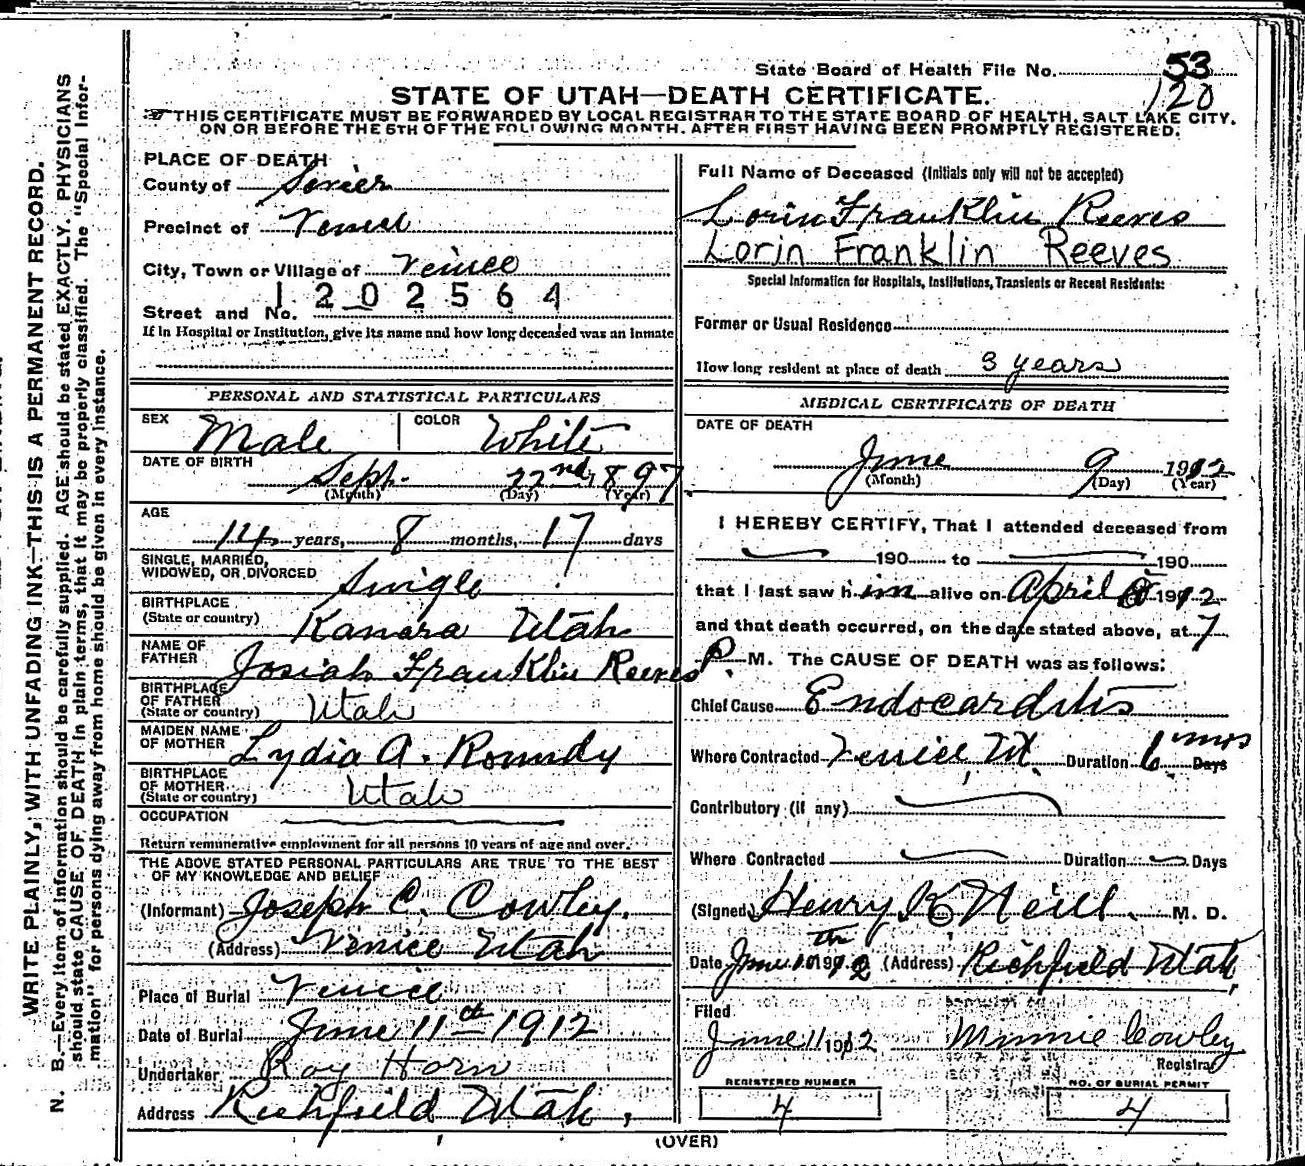 State Board of Health File No. 53
120
STATE OF UTAH—DEATH CERTIFICATE.
THIS CERTIFICATE MUST BE FORWARDED BY LOCAL REGISTRAR TO THE STATE BOARD OF HEALTH, SALT LAKE CITY.
ON OR BEFORE THE 5TH OF THE FOLLOWING MONTH. AFTER FIRST HAVING BEEN PROMPTLY REGISTERED.
WRITE PLAINLY, WITH UNFADING INK—THIS IS A PERMANENT RECORD.
N. B.—Every item of information should be carefully supplied. AGE should be stated EXACTLY. PHYSICIANS
should state CAUSE OF DEATH in plain terms, that it may be properly classified. The "Special Infor-
mation" for persons dying away from home should be given in every instance.
PLACE OF DEATH
County of Sevier
Precinct of Venice
City, Town or Village of Venice
1202564
Street and No.
If in Hospital or Institution, give its name and how long deceased was an inmate
PERSONAL AND STATISTICAL PARTICULARS
SEX Male COLOR White
DATE OF BIRTH Sept. 22nd, 1897
(Month) (Day) (Year)
AGE
14 years, 8 months, 17 days
SINGLE, MARRIED,
WIDOWED, OR DIVORCED Single
BIRTHPLACE
(State or country) Kanara Utah
NAME OF
FATHER Josiah Franklin Reeves
BIRTHPLACE
OF FATHER
(State or country) Utah
MAIDEN NAME
OF MOTHER Lydia A. Roundy
BIRTHPLACE
OF MOTHER
(State or country) Utah
OCCUPATION
Return remunerative employment for all persons 10 years of age and over.
THE ABOVE STATED PERSONAL PARTICULARS ARE TRUE TO THE BEST
OF MY KNOWLEDGE AND BELIEF
(Informant) Joseph C. Cowley.
(Address) Venice Utah
Place of Burial Venice
Date of Burial June 11th 1912
Undertaker Ray Horn
Address Richfield Utah,
Full Name of Deceased (Initials only will not be accepted)
Lorin Franklin Reeves
Lorin Franklin Reeves
Special Information for Hospitals, Institutions, Transients or Recent Residents:
Former or Usual Residence
How long resident at place of death 3 years
MEDICAL CERTIFICATE OF DEATH
DATE OF DEATH
June 9 1912
(Month) (Day) (Year)
I HEREBY CERTIFY, That I attended deceased from
190 to 190
that I last saw him alive on April 1912
and that death occurred, on the date stated above, at 7
P. M. The CAUSE OF DEATH was as follows:
Chief Cause Endocarditis
Where Contracted Venice, Ut. Duration 6 mos Days
Contributory (if any)
Where Contracted Duration Days
(Signed) Henry K Neill M. D.
Date June 10th 1912 (Address) Richfield Utah,
Filed
June 11 1912 Minnie Cowley
Registrar
REGISTERED NUMBER
4
NO. OF BURIAL PERMIT
4
(OVER)